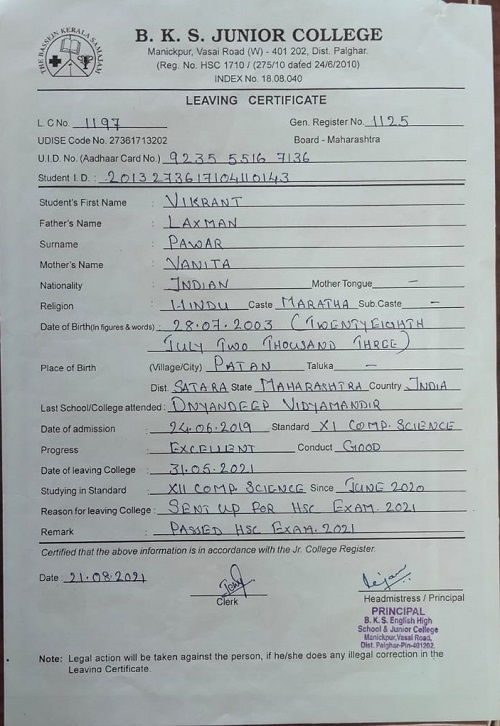 THE BASSEIN KERALA SAMAJAM
B. K. S. JUNIOR COLLEGE
Manickpur, Vasai Road (W) - 401 202, Dist. Palghar.
(Reg. No. HSC 1710 / (275/10 dated 24/6/2010)
INDEX No. 18.08.040
LEAVING CERTIFICATE
L. C No. 1197 Gen. Register No. 1125
UDISE Code No. 27361713202 Board - Maharashtra
U.I.D. No. (Aadhaar Card No.) 9235 5516 7136
Student I.D. : 2013273617104110143
Student's First Name : VIKRANT
Father's Name : LAXMAN
Surname : PAWAR
Mother's Name : VANITA
Nationality : INDIAN Mother Tongue —
Religion : HINDU Caste MARATHA Sub.Caste —
Date of Birth(in figures & words) : 28.07.2003 (TWENTYEIGHTH
JULY TWO THOUSAND THREE)
Place of Birth (Village/City) PATAN Taluka —
Dist. SATARA State MAHARASHTRA Country INDIA
Last School/College attended : DNYANDEEP VIDYAMANDIR
Date of admission : 24.06.2019 Standard XI COMP. SCIENCE
Progress : EXCELLENT Conduct GOOD
Date of leaving College : 31.05.2021
Studying in Standard : XII COMP. SCIENCE Since JUNE 2020
Reason for leaving College : SENT UP FOR HSC EXAM. 2021
Remark : PASSED HSC EXAM. 2021
Certified that the above information is in accordance with the Jr. College Register.
Date : 21.08.2021
Clerk Headmistress / Principal
PRINCIPAL
B. K. S. English High
School & Junior College
Manickpur, Vasai Road,
Dist. Palghar-Pin-401202.
Note: Legal action will be taken against the person, if he/she does any illegal correction in the
Leaving Certificate.